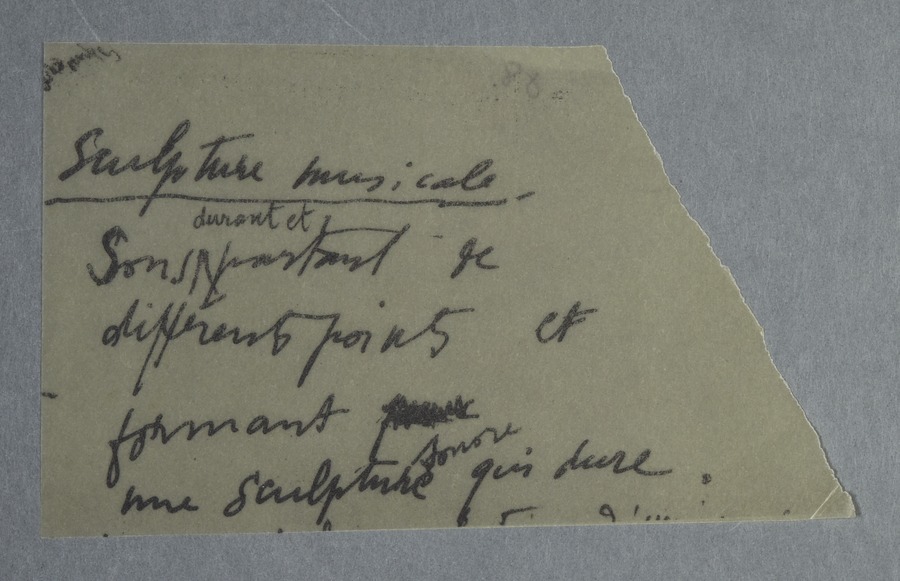 Sculpture musicale
durant et
Sons partant de
différents points et
formant
sonore
une sculpture qui dure.